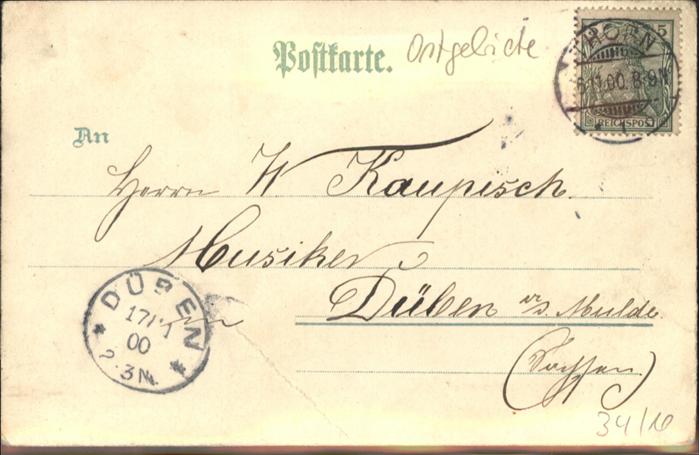 Postkarte.
Ostgebiete
THORN
5
11.00. 8-9N
REICHSPOST
An
Herrn W Kaupisch.
Musiker
in
Düben a/d. Mulde.
(Sachsen)
DÜBEN
17/11
00
2-3N.
34/16